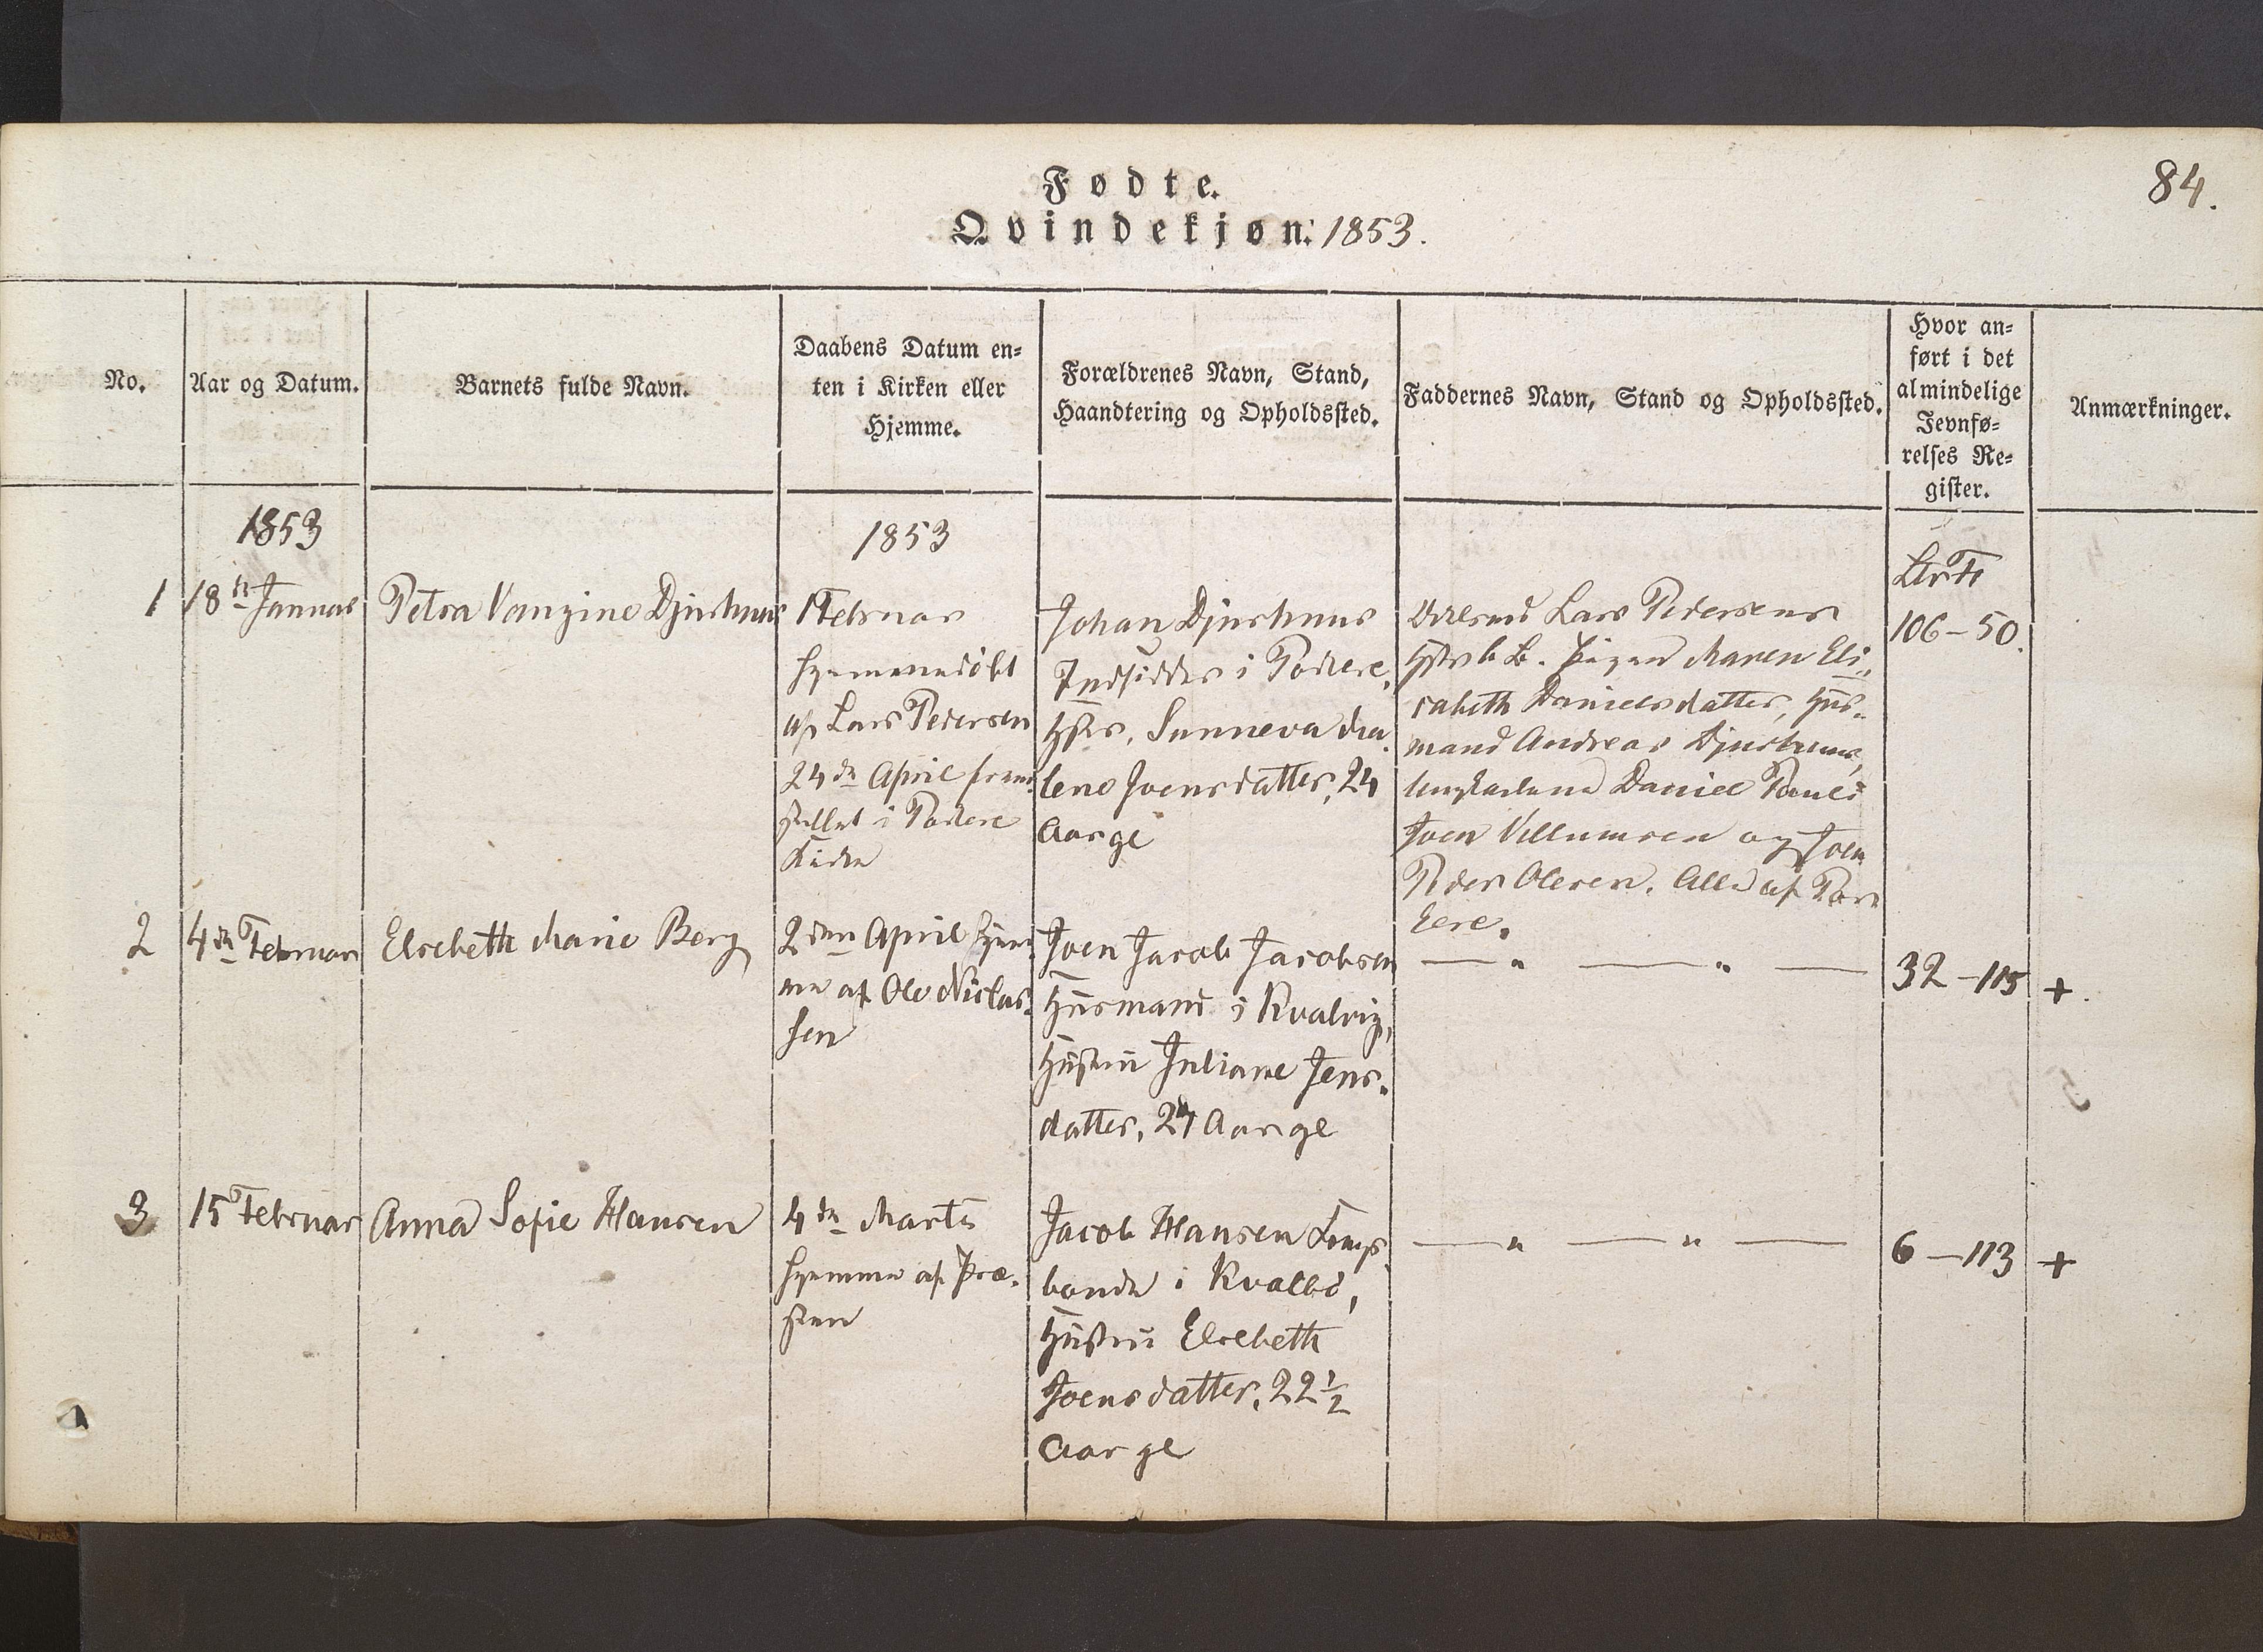 84.
Fødte.
Qvindekjøn. 1853.
No.
Aar og Datum.
Barnets fulde Navn.
Daabens Datum en-
ten i Kirken eller
Hjemme.
Forældrenes Navn, Stand,
Haandtering og Opholdssted.
Faddernes Navn, Stand og Opholdssted.
Hvor an-
ført i det
almindelige
Jevnfø-
relses Re-
gister.
Anmærkninger.
1853
1853
1
18de Januar
Petra Vanzine Djurhuus
1 Februar
hjemmedøbt
af Lars Pedersen
24de April frem-
stillet i Porkere
Kirke
Johan Djurhuus
Indsidder i Porkere,
Hstr. Sunneva Ma-
lene Joensdatter, 24
Aar gl
Lars Pedersens
Pigen Maren Eli-
sabeth Danielsdatter, Huus-
mand Andreas Djurhuus,
Ungkarlene Daniel Poul
Joen Villumsen og Joen
Peder Olesen. Alle af Por-
kere.
106-50.
2
4de Februar
Elsebeth Marie Berg
2den April hjem-
me af Ole Niclas-
sen
Joen Jacob Jacobsen
Huusmand i Kvalvig,
Hustru Juliane Jens-
datter, 24 Aar gl
— " — " —
32-115
+
3
15 Februar
Anna Sofie Hansen
4de Marts
hjemme af Præ-
sten
Jacob Hansen Kongs-
bonde i Kvalbø,
Hustru Elsebeth
Joensdatter, 22 1/2
Aar gl
— " — " —
6-113
+